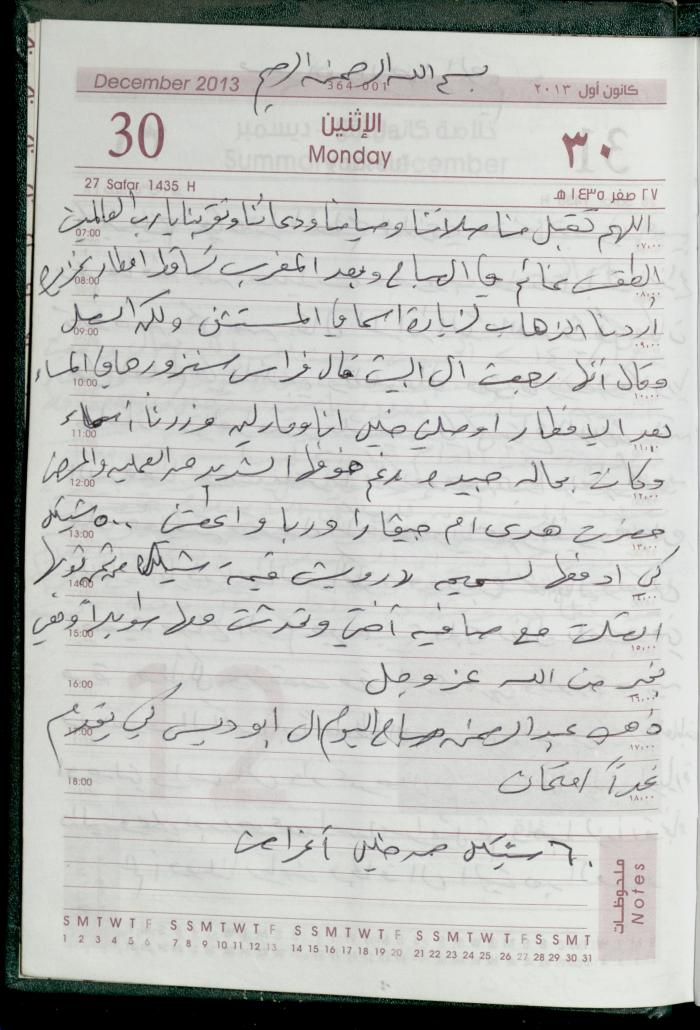 بسم الله الرحمن الرحيم
December 2013
364-001
كانون أول ٢٠١٣
30
الإثنين
Monday
٣٠
27 Safar 1435 H
٢٧ صفر ١٤٣٥ هـ
اللهم تقبل منا صلاتنا وصيامنا ودعائنا وتقربنا يا رب العالمين
07:00 ٠٧,٠٠
الطقس غائم في الصباح وبعد المغرب تساقط امطار غزيرة
08:00 ٠٨,٠٠
اردنا الذهاب لزيارة اسما في المستشفى ولكن اتصل
09:00 ٠٩,٠٠
وقال أنها رجعت الى البيت قال فراس سنزورها في المساء
10:00 ١٠,٠٠
بعد الافطار اوصلني خليل انا ومارلين وزرنا أسماء
11:00 ١١,٠٠
وكانت بحالة جيدة رغم خوفها الشديد من العملية والمرض
12:00 ١٢,٠٠
حضرت هدى ام جيفارا ودبا واعطتني ٥٠٠ شيكل
13:00 ١٣,٠٠
كي ادفعها لسميح درويش قيمة شيك
14:00 ١٤,٠٠
اتصلت مع صافيه أختي وتحدثت معها طويلاً وهي
15:00 ١٥,٠٠
بخير من الله عز وجل
16:00 ١٦,٠٠
ذهب عبد الرحمن صباح اليوم الى ابو ديس كي يقدم
17:00 ١٧,٠٠
غداً امتحان
18:00 ١٨,٠٠
٦٠ شيكل من خليل أغراض
ملاحظات
Notes
S M T W T F S S M T W T F S S M T W T F S S M T W T F S S M T
1 2 3 4 5 6 7 8 9 10 11 12 13 14 15 16 17 18 19 20 21 22 23 24 25 26 27 28 29 30 31